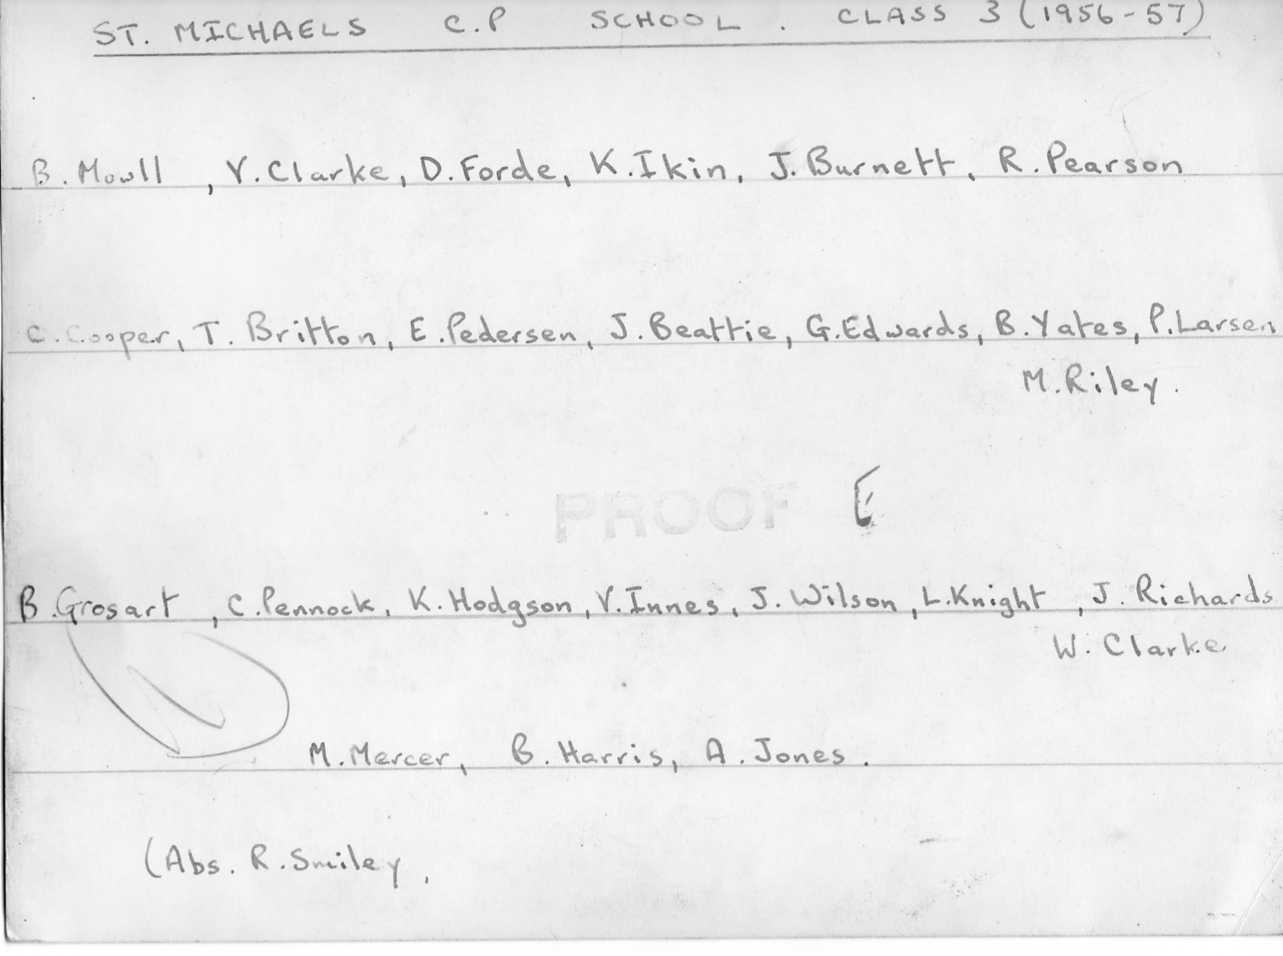 ST. MICHAELS C.P SCHOOL . CLASS 3 (1956-57)
B. Mowll , V. Clarke, D. Forde, K. Ikin, J. Burnett, R. Pearson
C. Cooper, T. Britton, E. Pedersen, J. Beattie, G. Edwards, B. Yates, P. Larsen
M. Riley.
PROOF
B. Grosart , C. Pennock, K. Hodgson, V. Innes, J. Wilson, L. Knight , J. Richards
W. Clarke
M. Mercer, B. Harris, A. Jones.
(Abs. R. Smiley,